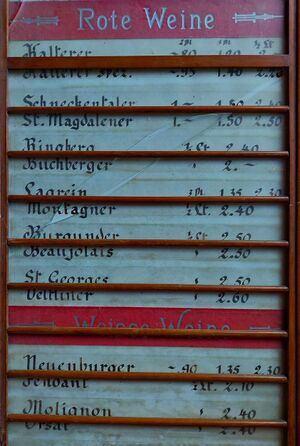 Rote Weine
2 Dl. 3 Dl. ½ Lt.
Kalterer -.80 1.20 2.-
Kalterer Spez. -.95 1.40 2.20
Schneckentaler 1.- 1.50 2.40
St. Magdalener 1.- 1.50 2.50
Ringberg ½ Lt. 2.40
Buchberger " 2.-
Lagrein 1.35 2.30
Montagner ½ Lt. 2.40
Burgunder ½ Lt. 2.50
Beaujolais " 2.50
St. Georges " 2.50
Veltliner " 2.60
Weisse Weine
Neuenburger -.90 1.35 2.30
Fendant ½ Lt. 2.10
Molignon " 2.40
Orsat " 2.40